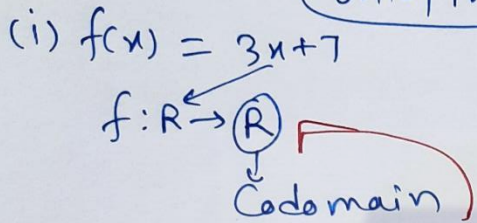 (i) f(x) = 3x+7
f : R → R
Codomain